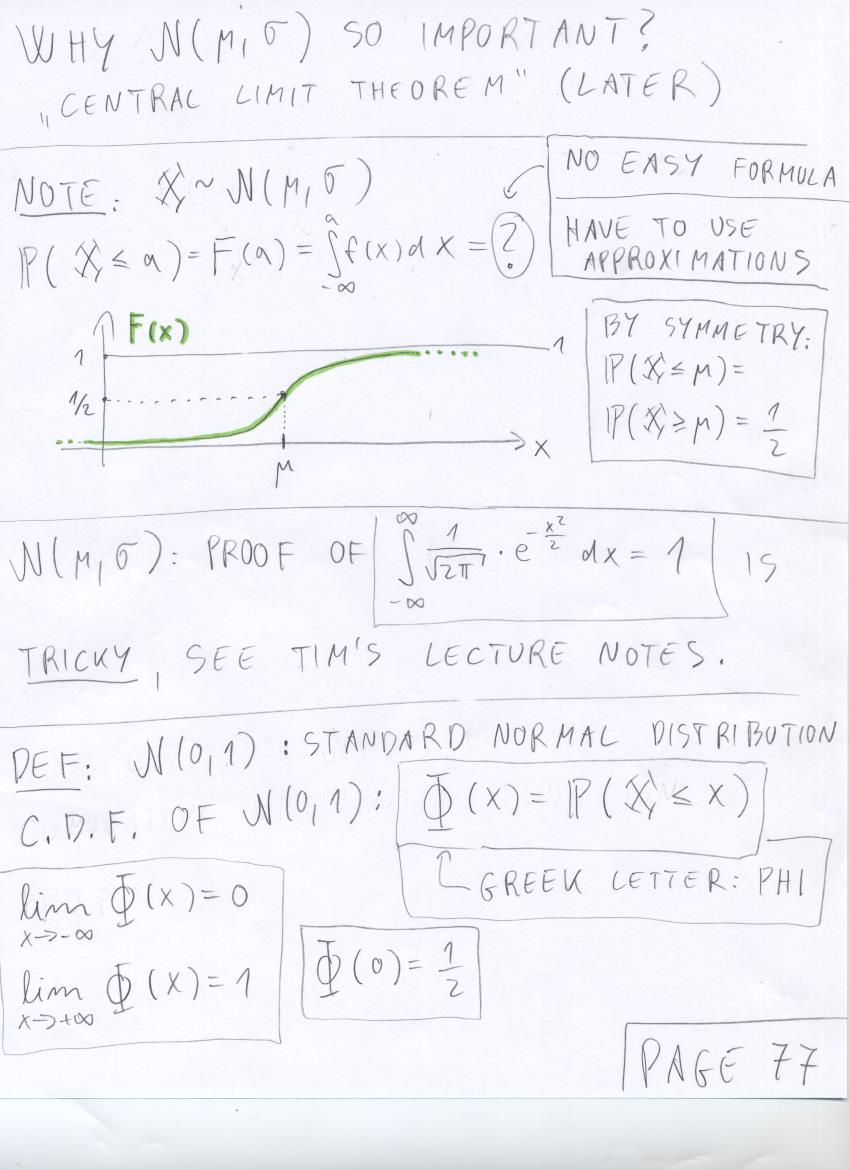 WHY N(μ, σ) SO IMPORTANT?
„CENTRAL LIMIT THEOREM" (LATER)
NOTE: X ~ N(μ, σ)
NO EASY FORMULA
HAVE TO USE
APPROXIMATIONS
P(X ≤ a) = F(a) = ∫_{-∞}^{a} f(x) dx = ?
F(x)
1
1
1/2
μ
x
BY SYMMETRY:
P(X ≤ μ) =
P(X ≥ μ) = 1/2
N(μ, σ): PROOF OF ∫_{-∞}^{∞} 1/√2π · e^{-x²/2} dx = 1 IS
TRICKY, SEE TIM'S LECTURE NOTES.
DEF: N(0,1) : STANDARD NORMAL DISTRIBUTION
C.D.F. OF N(0,1): Φ(x) = P(X ≤ x)
GREEK LETTER: PHI
lim_{x→-∞} Φ(x) = 0
lim_{x→+∞} Φ(x) = 1
Φ(0) = 1/2
PAGE 77